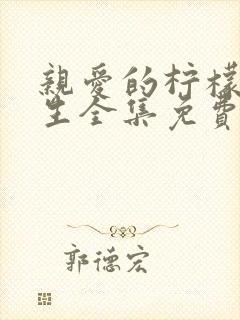 親愛的柠檬
生全集免費
郭德宏